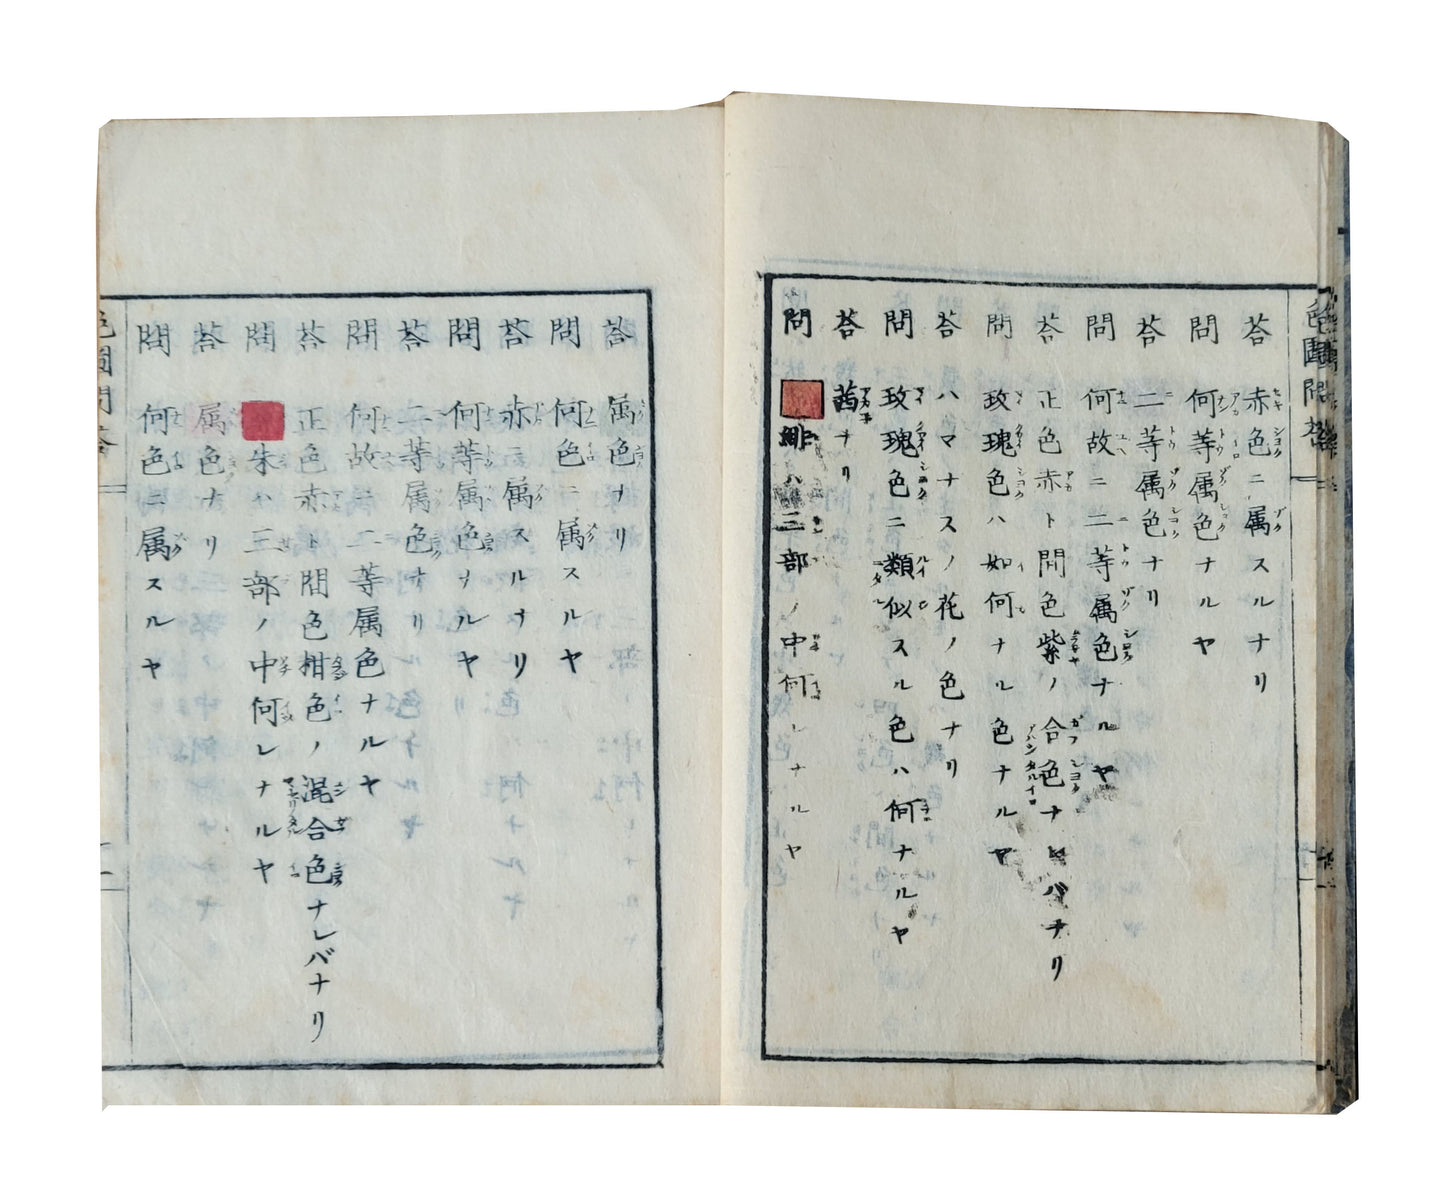 答 赤色ニ属スルナリ
問 何等属色ナルヤ
答 二等属色ナリ
問 何故ニ二等属色ナルヤ
答 正色赤ト間色紫ノ合色ナレバナリ
問 玫瑰色ハ如何ナル色ナルヤ
答 ハマナスノ花ノ色ナリ
問 玫瑰色ニ類似スル色ハ何ナルヤ
答 茜ナリ
問 緋ハ三部ノ中何レナルヤ
答 属色ナリ
問 何色ニ属スルヤ
答 赤ニ属スルナリ
問 何等属色ナルヤ
答 二等属色ナリ
問 何故ニ二等属色ナルヤ
答 正色赤ト間色柑色ノ混合色ナレバナリ
問 朱ハ三部ノ中何レナルヤ
答 属色ナリ
問 何色ニ属スルヤ
色圖問答